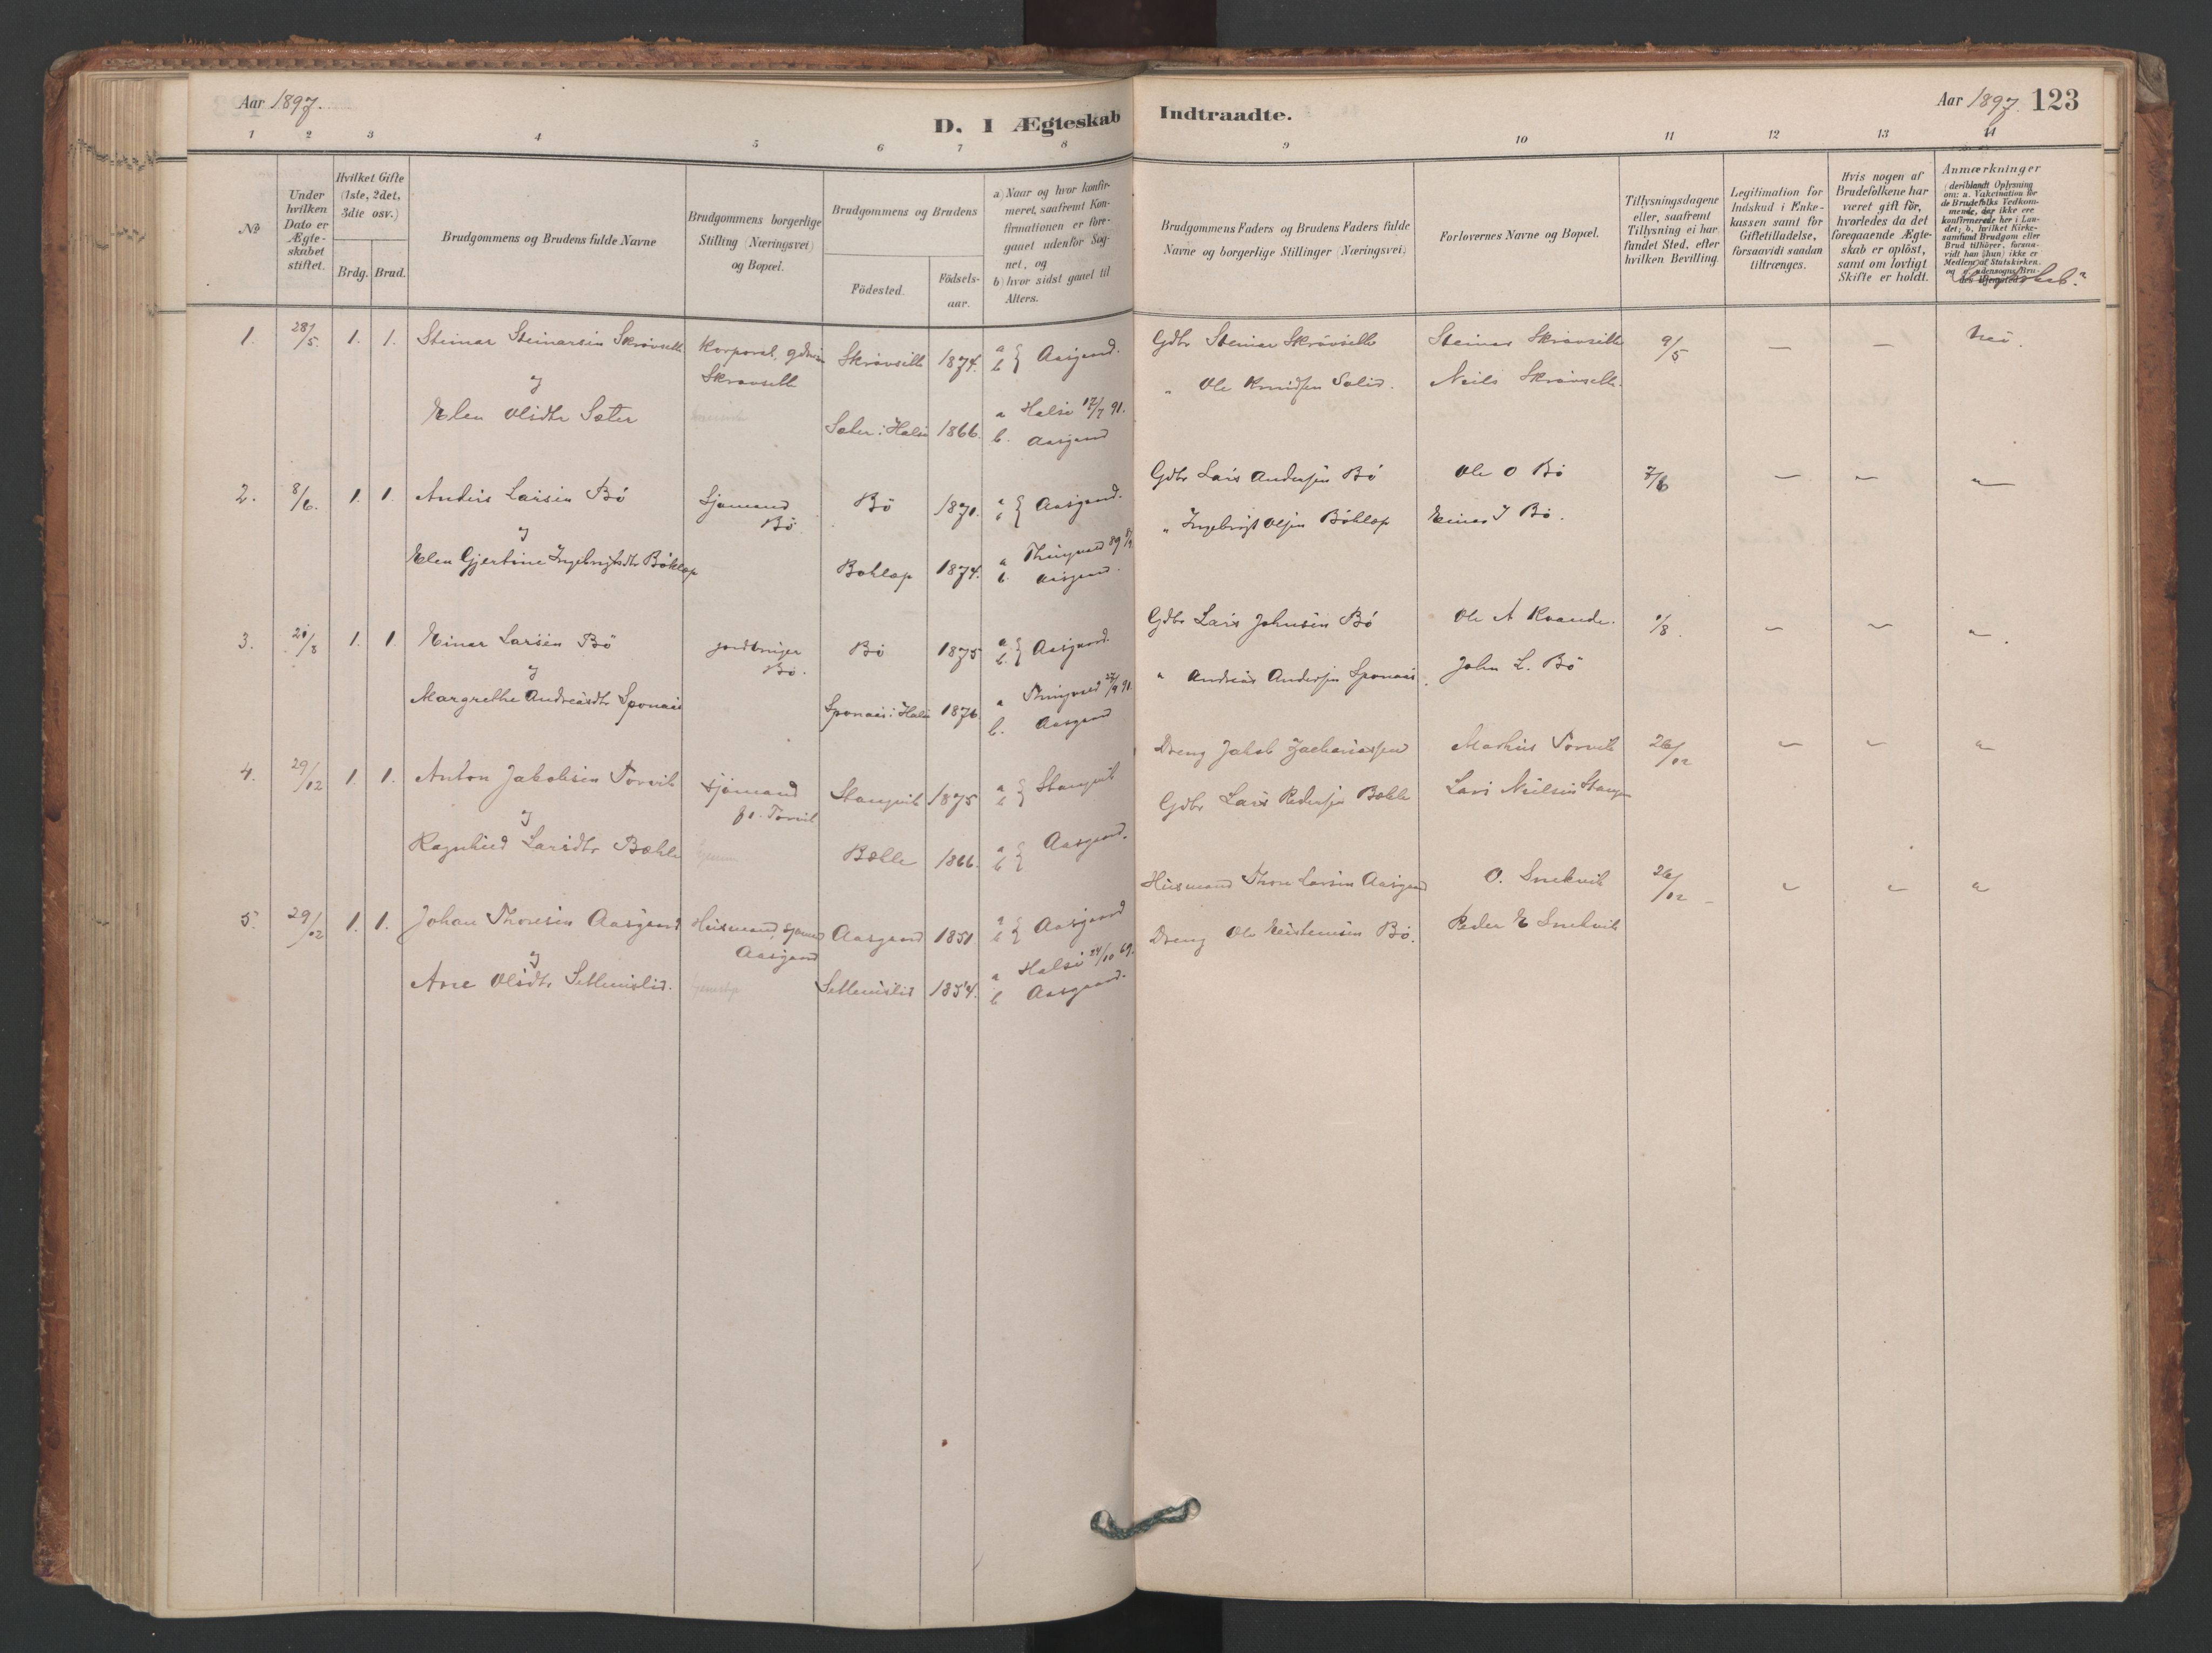 Aar 1897.
D. I Ægteskab Indtraadte.
Aar 1897. 123
1 2 3 4 5 6 7 8 9 10 11 12 13 14
No
Under hvilken Dato er Ægteskabet stiftet.
Hvilket Gifte (1ste, 2det, 3die osv.)
Brdg. Brud.
Brudgommens og Brudens fulde Navne
Brudgommens borgerlige Stilling (Næringsvei) og Bopæl.
Brudgommens og Brudens
Födested. Födsels-aar.
a) Naar og hvor konfir-
meret, saafremt Kon-
firmationen er fore-
gaaet udenför Sog-
net, og
b) hvor sidst gaaet til
Alters.
Brudgommens Faders og Brudens Faders fulde
Navne og borgerlige Stillinger (Næringsvei)
Forlovernes Navne og Bopæl.
Tillysningsdagene
eller, saafremt
Tillysning ei har
fundet Sted, efter
hvilken Bevilling.
Legitimation for
Indskud i Enke-
kassen samt for
Giftetilladelse,
forsaavidt saadan
tiltrænges.
Hvis nogen af
Brudefolkene har
været gift för,
hvorledes da det
foregaaende Ægte-
skab er oplöst,
samt om lovligt
Skifte er holdt.
Anmærkninger
(deriblandt Oplysning
om: a. Vakcination for
de Brudefolks Vedkom-
mende, der ikke ere
konfirmerede her i Lan-
det; b. hvilket Kirke-
samfund Brudgom eller
Brud tilhörer, forsaa-
vidt han (hun) ikke er
Medlem af Statskirken.
1. 28/5. 1. 1. Steinar Steinarsen Skrövseth Korporal, Skrövseth 1874. a b } Aasgaard. Gdbr Steinar Skrövseth Steinar Skrövseth 9/5 — — Nei.
og Skrovseth " Ole Knudsen Neils Skrövseth
Elen Olsdtr Sæter Sæter i Halse 1866. a Halse 12/7 91.
b. Aasgaard
2. 8/6. 1. 1. Anders Larsen Bö Sjømand Bö 1871. a b } Aasgaard. Gdbr Lars Andersen Bö Ole O Bö 7/6 — — "
og Bö. " Ingebrigt Olsen Böhlap Einar J Bö.
Elen Gjertine Ingebrigtsdtr Böhlap Bohlap 1874. a Thingvold 89
b. Aasgaard.
3. 21/8 1. 1 Einar Larsen Bö jordbruger Bö 1875 a b. } Aasgaard. Gdbr Lars Johnsen Bö Ole A Kvande. 1/8. — — "
og Bö. " Andreas Andersen Sponaas. John L. Bö
Margrethe Andreasdtr Sponaas Sponaas i Halse 1876 a Thingvold 27/9 91.
b. Aasgaard
4. 29/12 1. 1. Anton Jakobsen Torvik Sjömand Stangvik 1875 a b } Stangvik Dreng Jakob Zachariassen Mathias Torvik 26/12 — — "
og fr. Torvik Gdbr Lars Pedersen Bæhle Lars Neilsen Stangv
Ragnhild Larsdtr Bæhle Bæhle 1866. a b { Aasgaard.
5. 29/12 1. 1. Johan Thoresen Aasgaard Husmand, Aasgaard 1851 a b } Aasgaard Husmand Thore Larsen Aasgaard O. Snekvik 26/12 — — "
og Aasgaard Dreng Ole Bö. Peder E Snekvik
Ane Olsdtr Settemslid. Settemslid 1854. a Halse 24/10 69.
b Aasgaard.